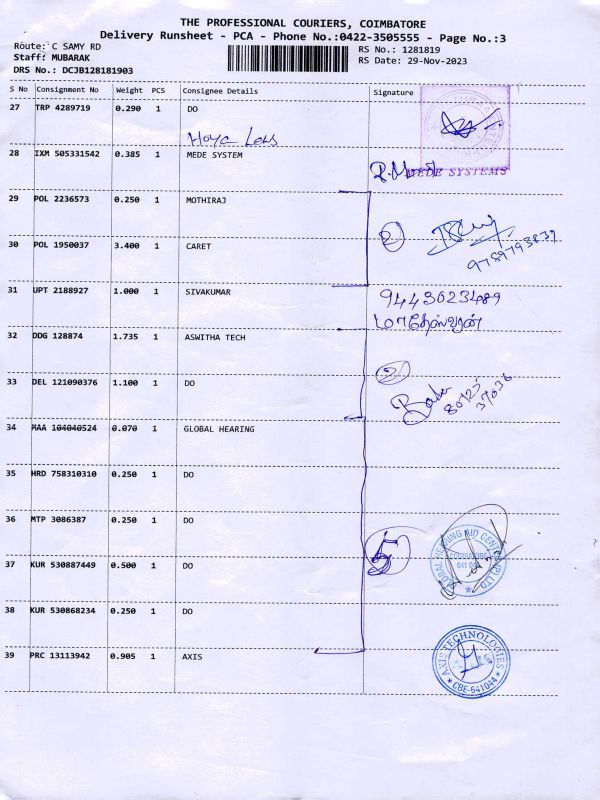 THE PROFESSIONAL COURIERS, COIMBATORE
Delivery Runsheet - PCA - Phone No.:0422-3505555 - Page No.:3
Route: C SAMY RD RS No.: 1281819
Staff: MUBARAK RS Date: 29-Nov-2023
DRS No.: DCJB128181903
S No Consignment No Weight PCS Consignee Details Signature
27 TRP 4289719 0.290 1 DO
Hoya Lens
28 IXM 505331542 0.385 1 MEDE SYSTEM
MEDE SYSTEMS
29 POL 2236573 0.250 1 MOTHIRAJ
2
30 POL 1950037 3.400 1 CARET
9789793839
31 UPT 2188927 1.000 1 SIVAKUMAR 9443023489
மாதேஸ்வரன்
32 DDG 128874 1.735 1 ASWITHA TECH
2
33 DEL 121090376 1.100 1 DO
80123
37036
34 MAA 104040524 0.070 1 GLOBAL HEARING
35 HRD 758310310 0.250 1 DO
36 MTP 3086387 0.250 1 DO
5
GLOBAL HEARING AID CENTRE (P) LTD
COIMBATORE
37 KUR 530887449 0.500 1 DO
38 KUR 530868234 0.250 1 DO
39 PRC 13113942 0.905 1 AXIS
AXIS TECHNOLOGIES
CBE-641044